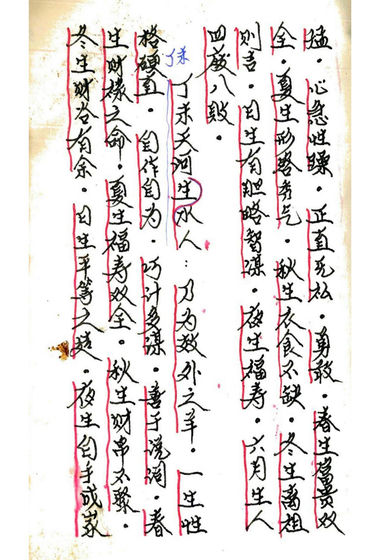 猛。心急性躁。正直无私。勇敢。春生福贵双
全。夏生形略秀气。秋生衣食不缺。冬生离祖
则吉。日生有胆略智谋。夜生福寿。六月生人
四废八败。
丁未
丁未天河生水人：乃为数外之羊。一生性
格硬直。自作自为。巧计多谋。善于说词。春
生财禄之命。夏生福寿双全。秋生财帛不聚。
冬生财谷有余。日生平等之造。夜生白手成家